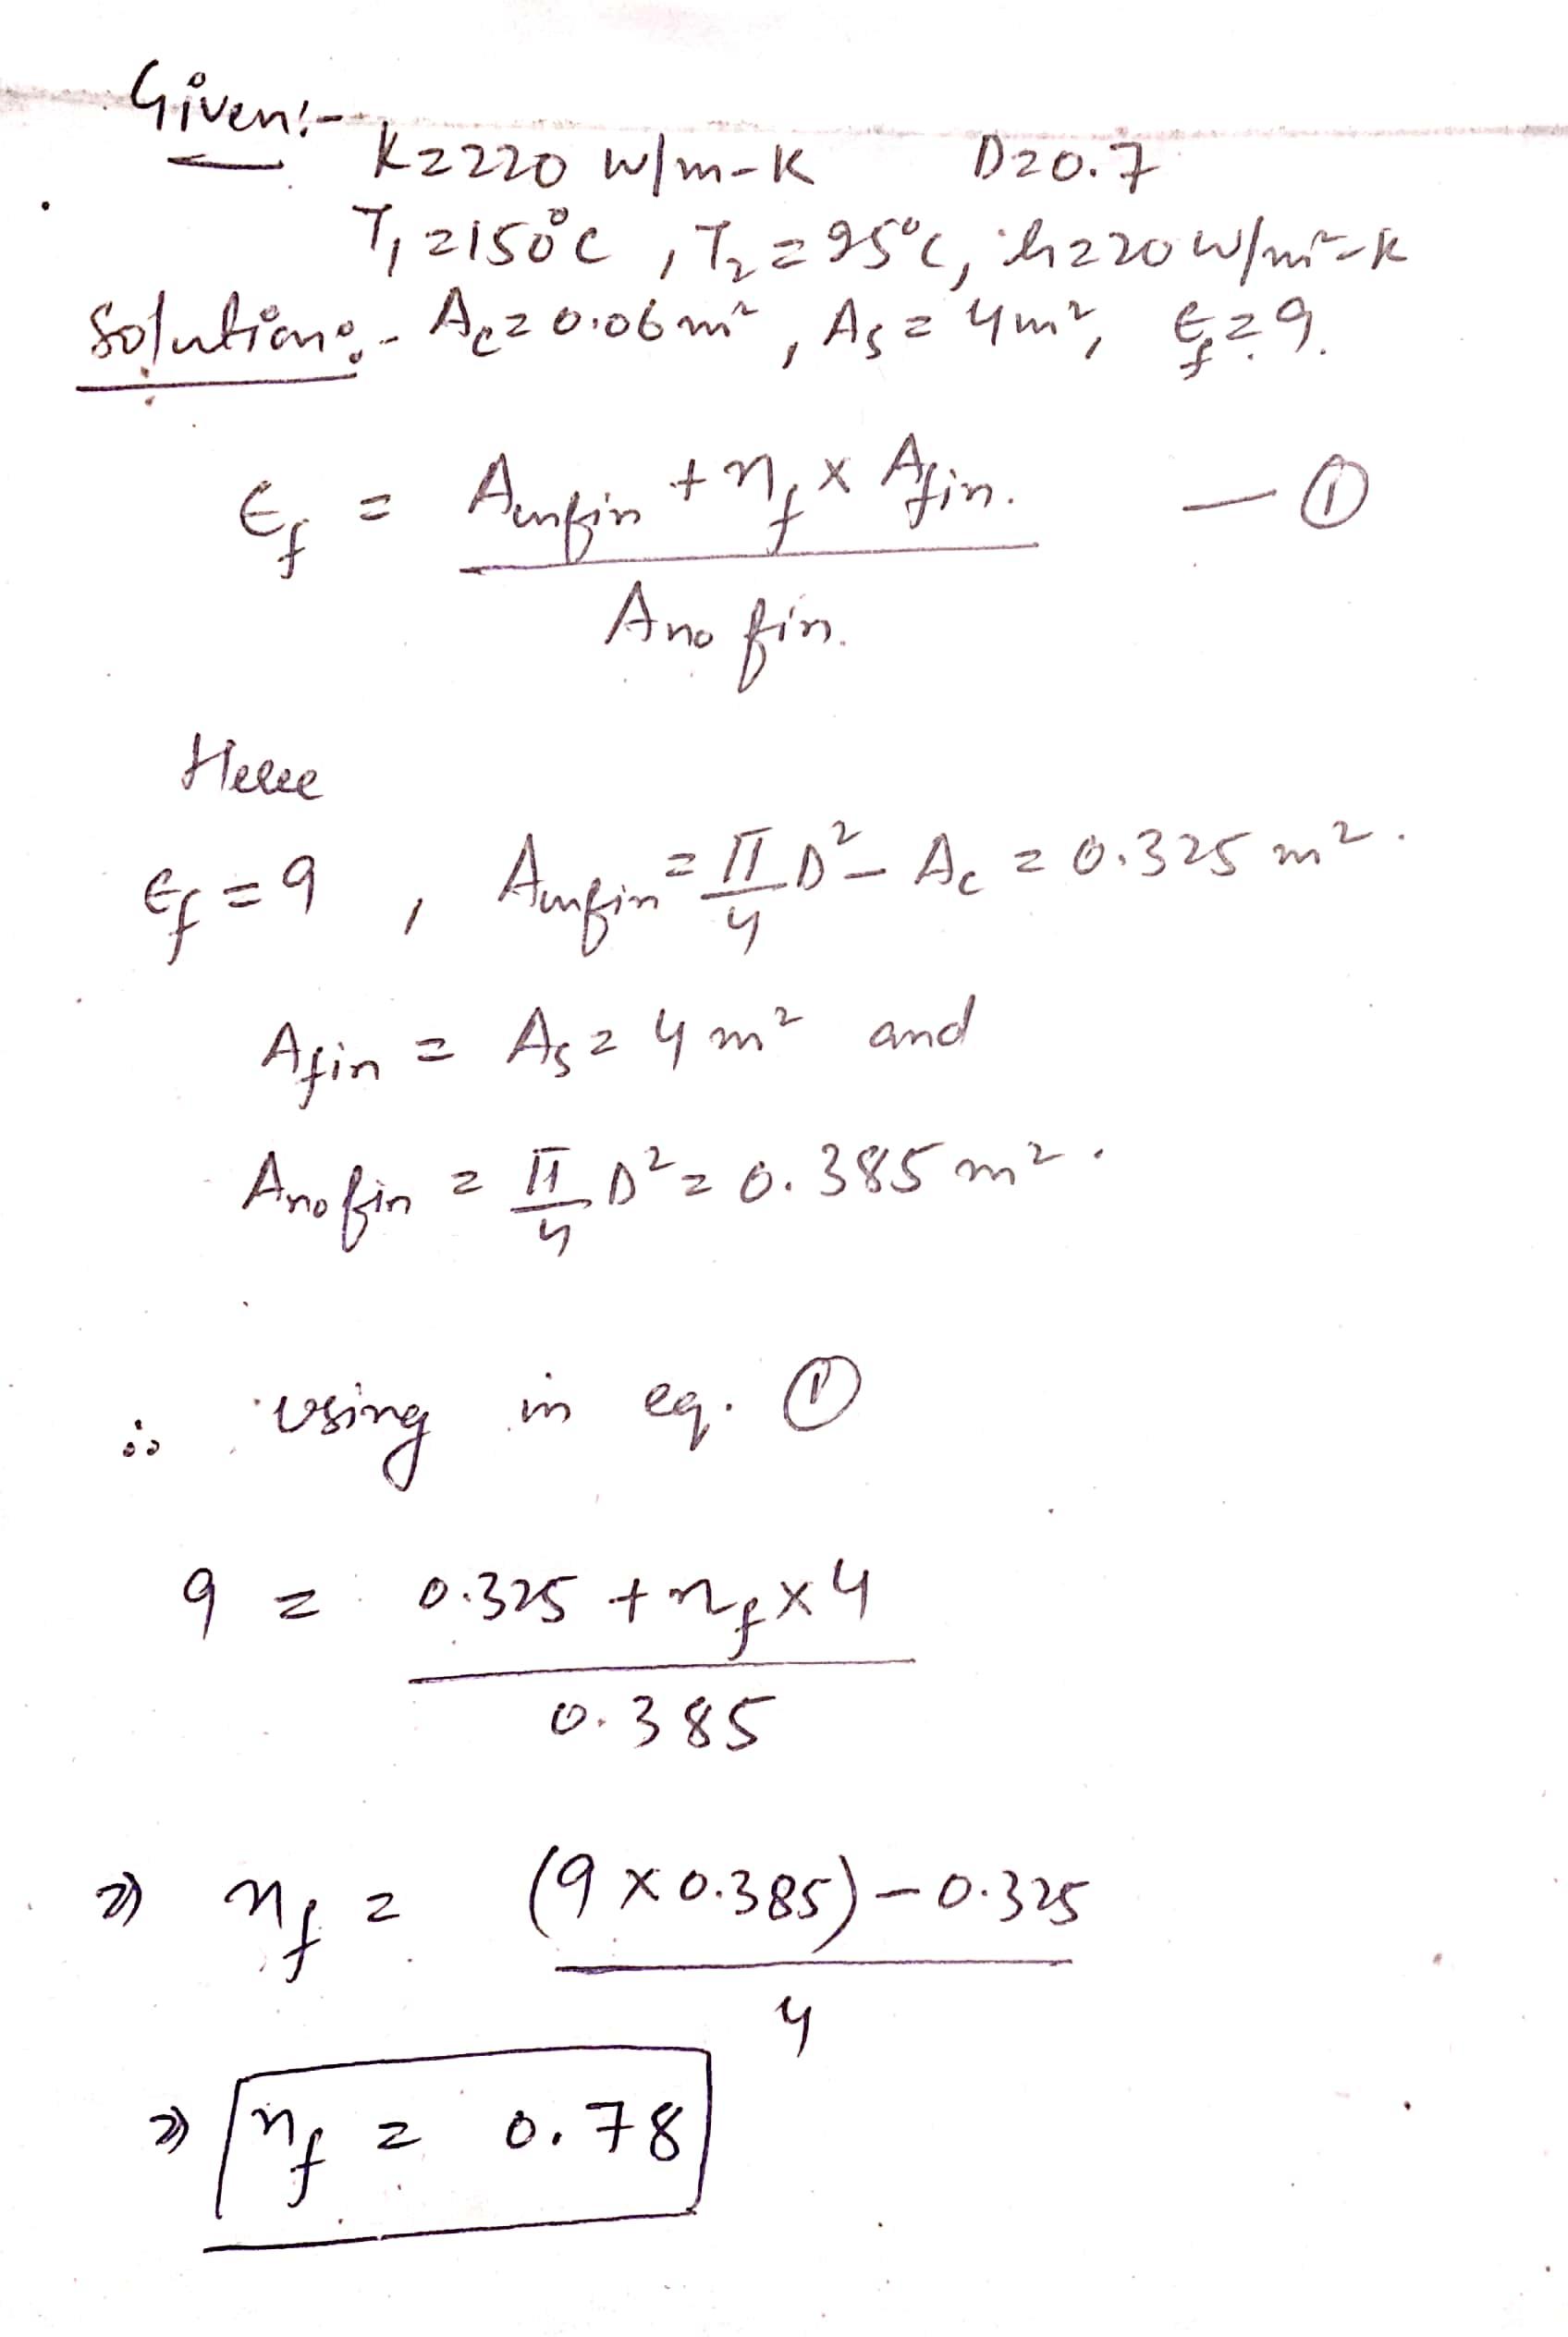 Given:-
K=220 W/m-K D=0.7
T₁=150°C , T₂=25°C, h=20 W/m²-K
Solution:- Ac=0.06 m² , As=4m², ϵf=9.
ϵf = Aunfin + ηf × Afin. — ①
Ano fin.
Here
ϵf=9 , Aunfin = π/4 D² - Ac = 0.325 m².
Afin = As = 4 m² and
Ano fin = π/4 D² = 0.385 m².
∴ using in eq. ①
9 = 0.325 + ηf × 4
0.385
⇒ ηf = (9 × 0.385) - 0.325
4
⇒ ηf = 0.78